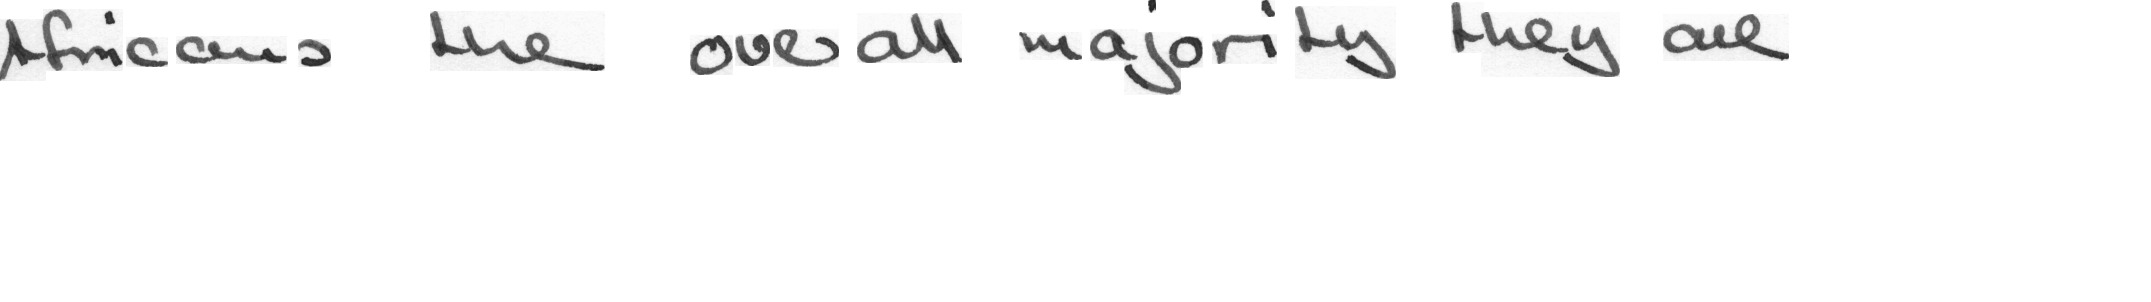 Africans the overall majority they are